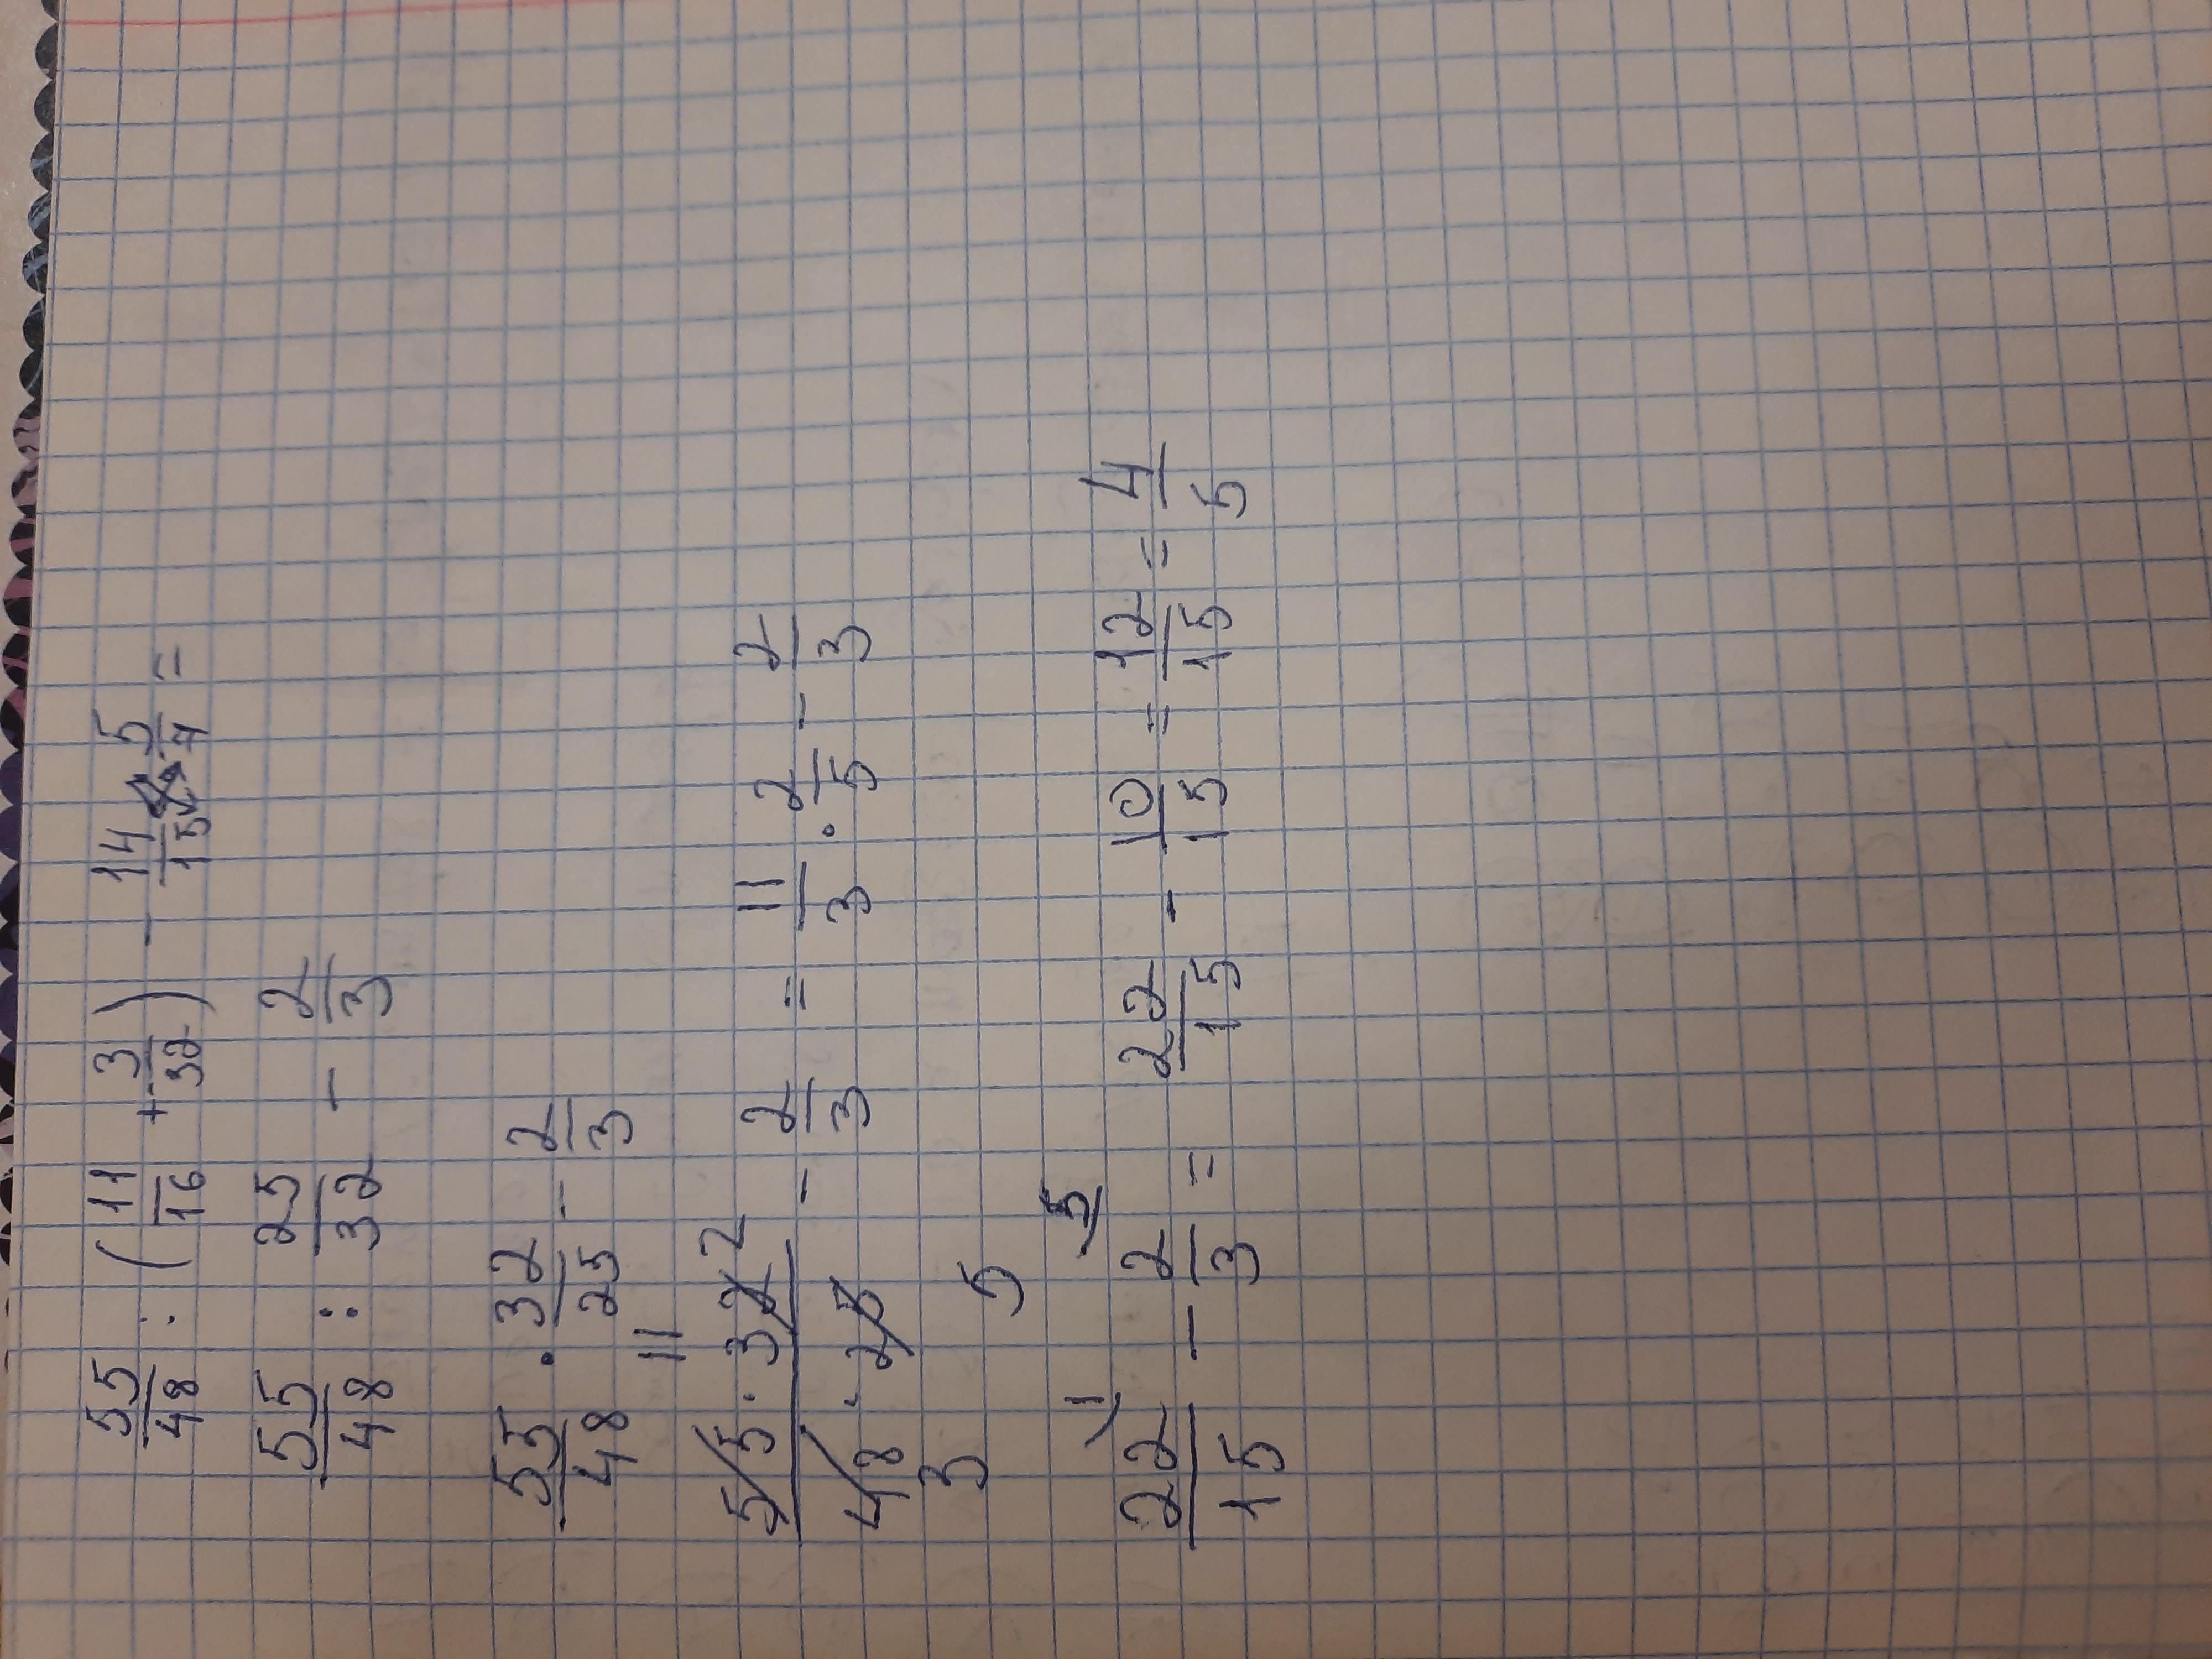 55/48 : (11/16 + 3/32) - 14/15 · 5/7 =
55/48 : 25/32 - 2/3
55/48 · 32/25 - 2/3
11 2
55 · 32 / 48 · 25 - 2/3 = 11/3 · 2/5 - 2/3
3 5
1 5
22/15 - 2/3 = 22/15 - 10/15 = 12/15 = 4/5